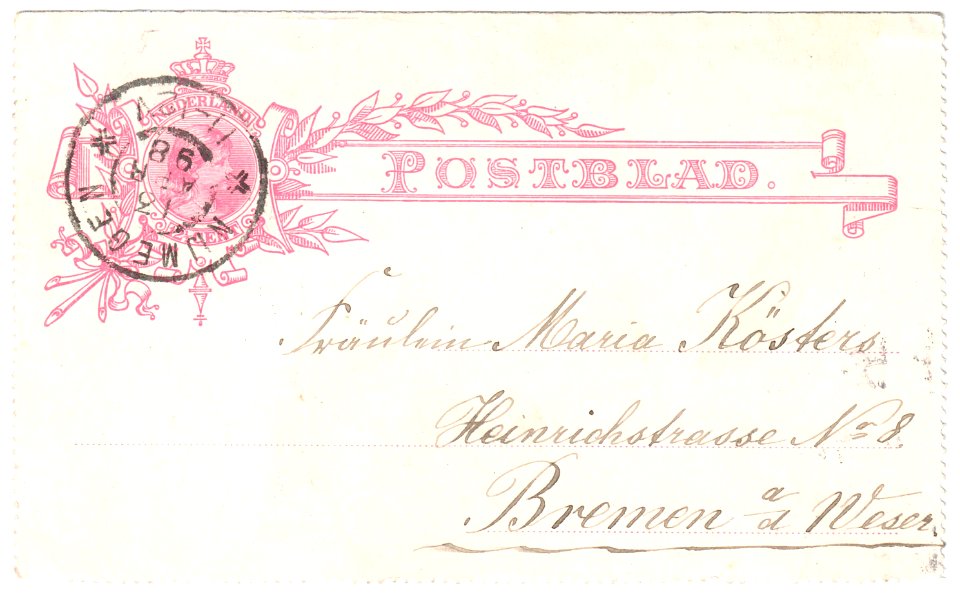 NEDERLAND
POSTBLAD.
NIJMEGEN
98
Fräulein Maria Kösters
Heinrichstrasse No 8.
Bremen a/d Weser.